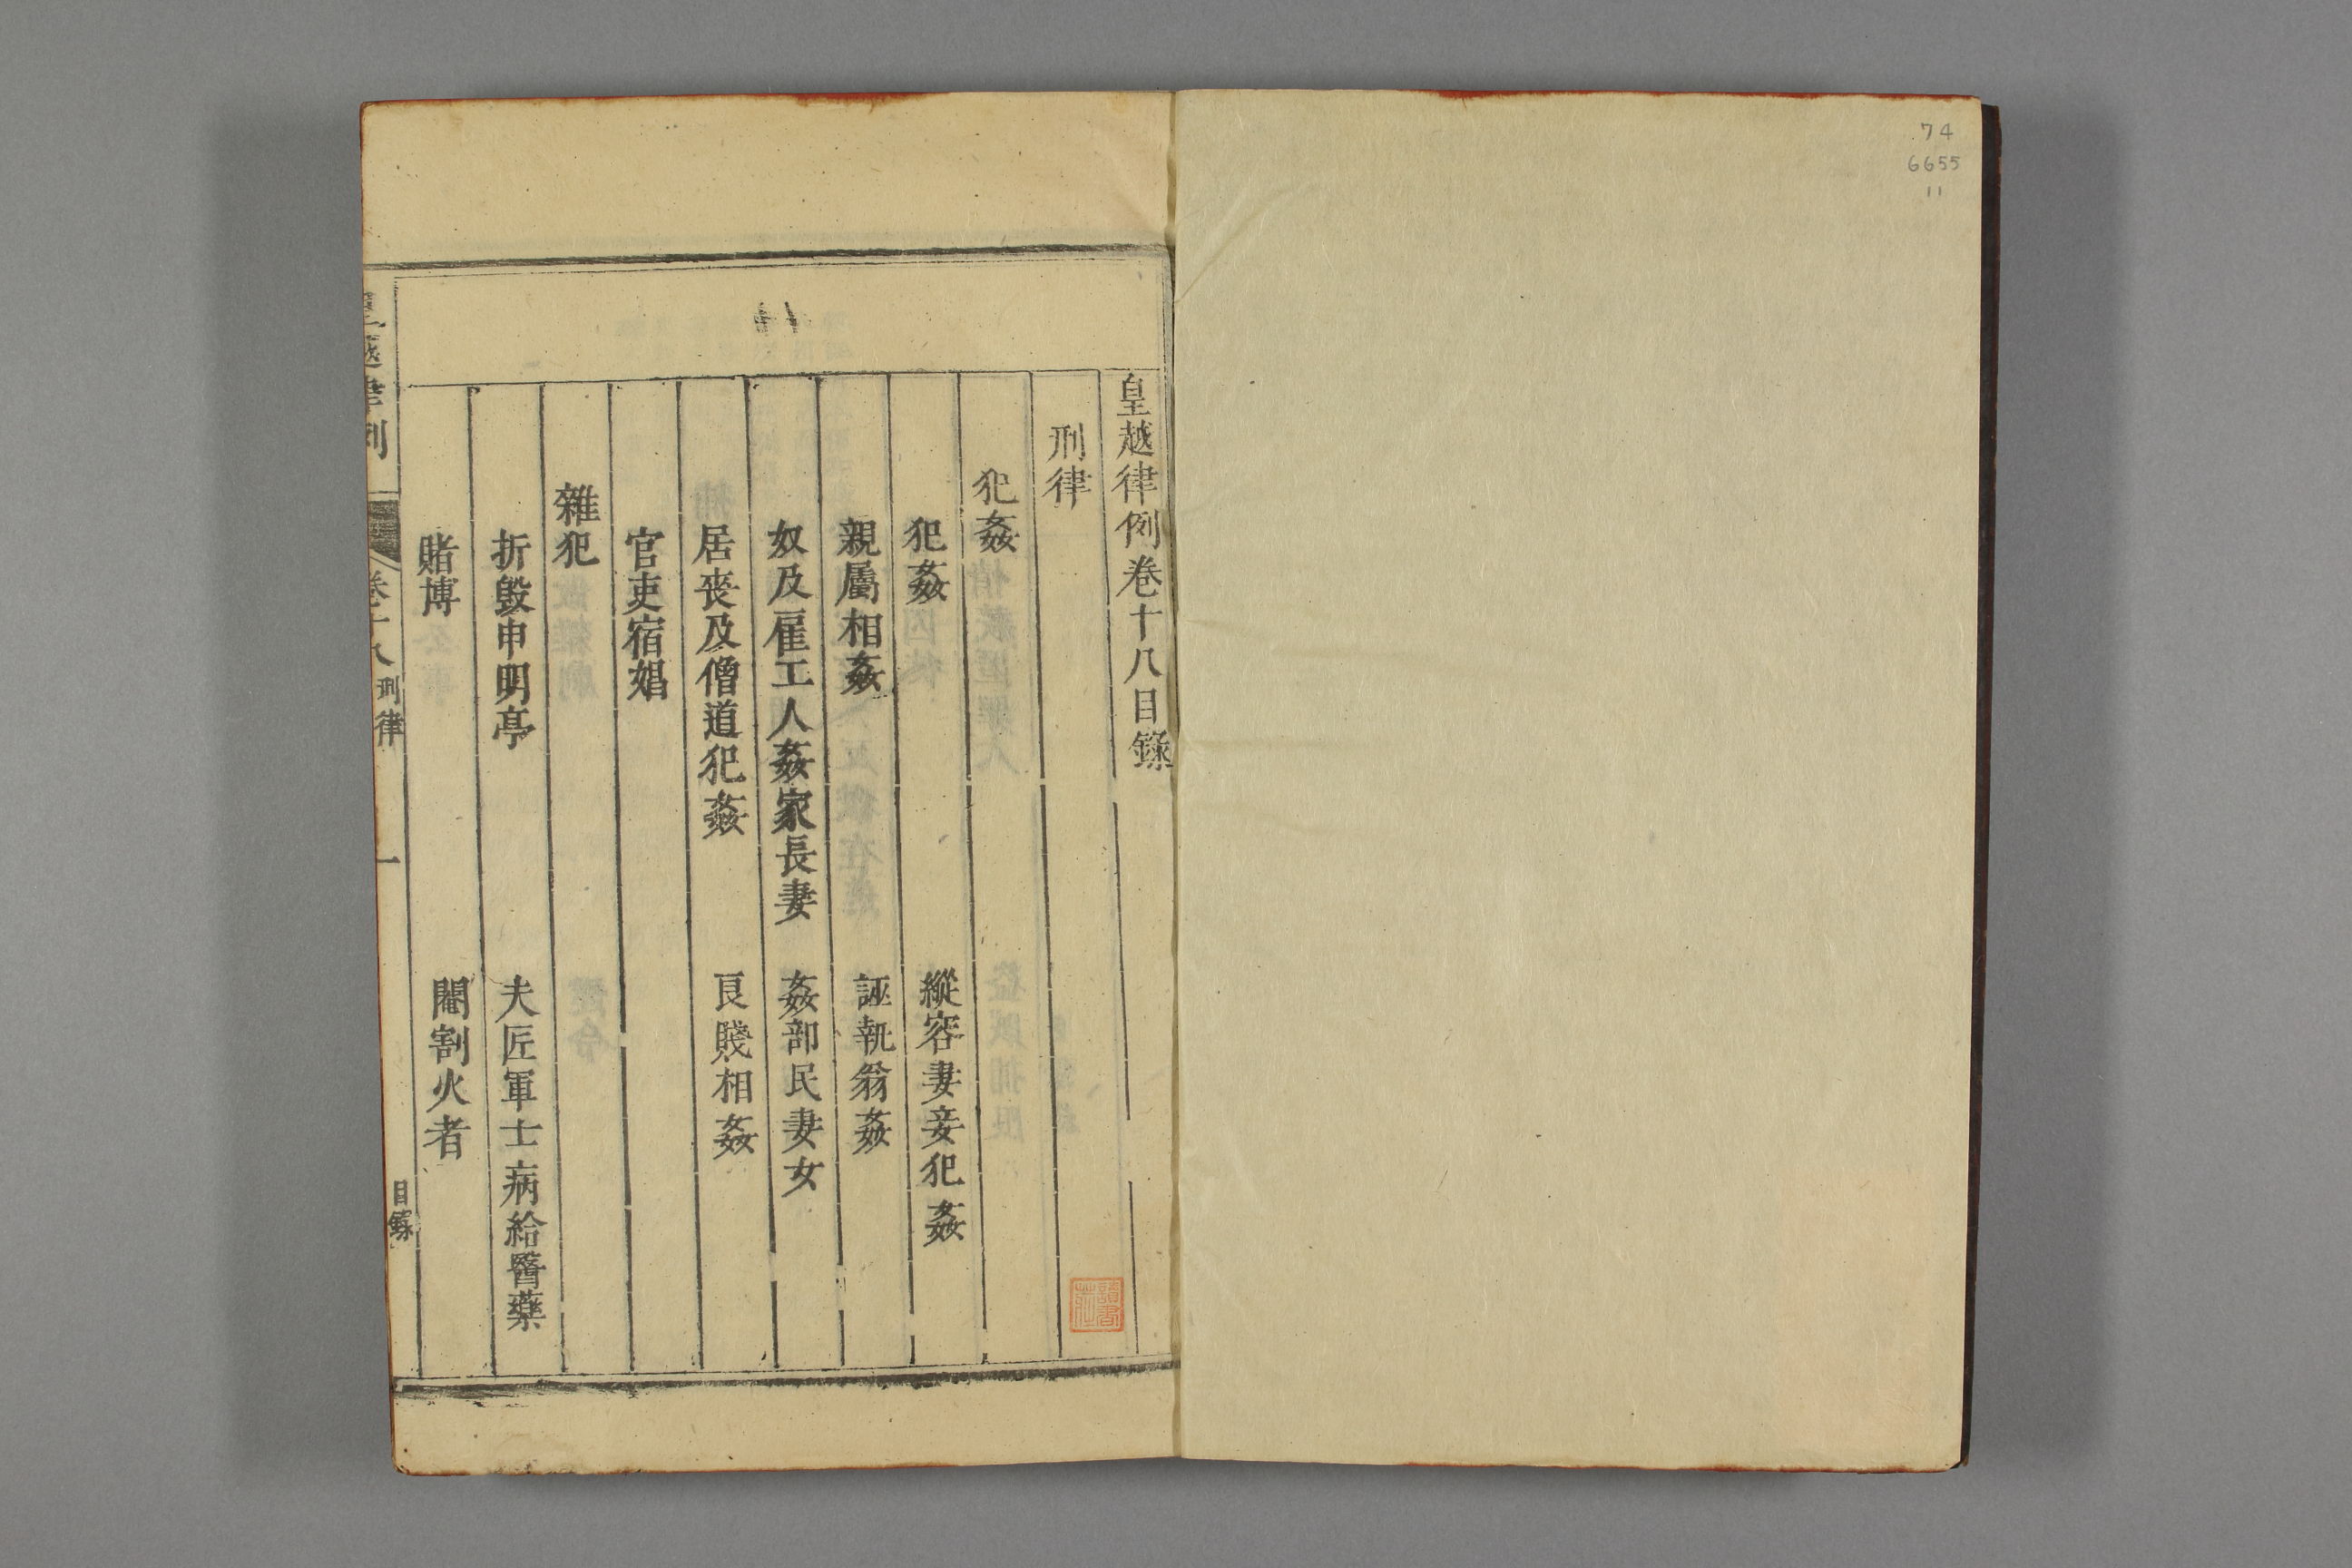 74
6655
11
皇越律例卷十八目錄
刑律
犯姦
犯姦　縱容妻妾犯姦
親屬相姦　誣執翁姦
奴及雇工人姦家長妻　姦部民妻女
居喪及僧道犯姦　良賤相姦
官吏宿娼
雜犯
折毀申明亭　夫匠軍士病給醫藥
賭博　閹割火者
皇越律例　卷十八　刑律　一　目錄